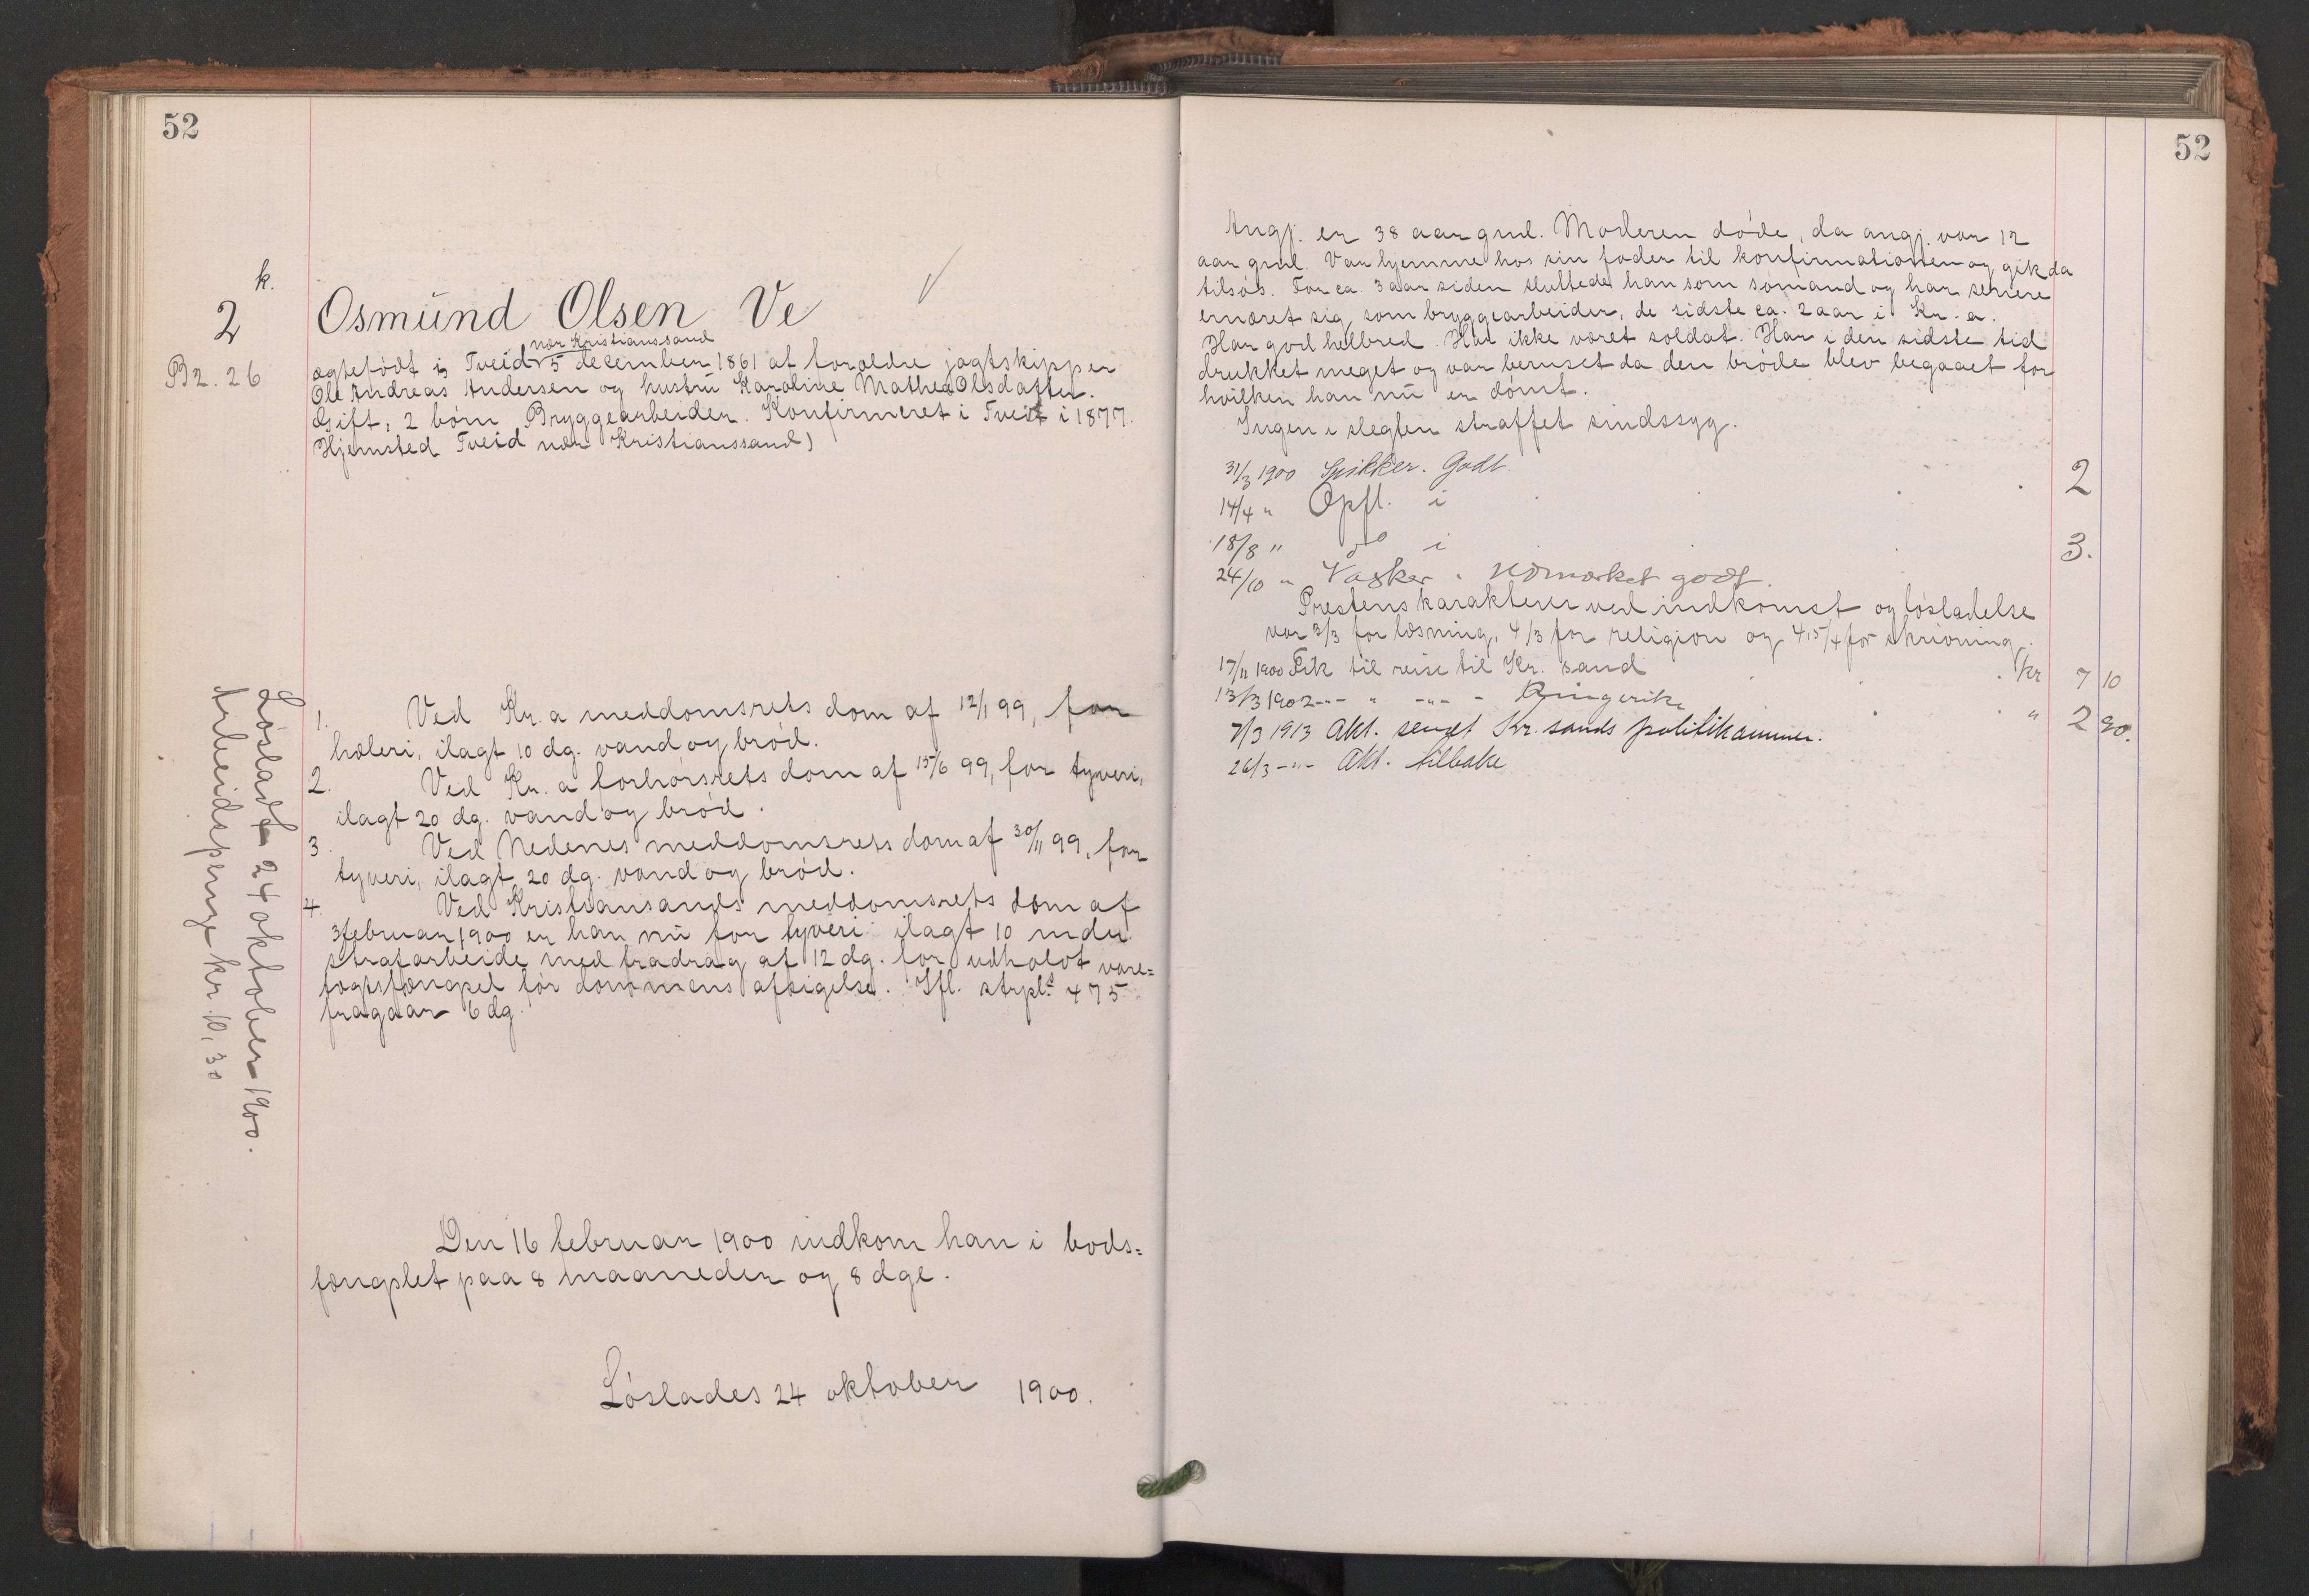 52
k.
2
Bz. 26
Osmund Olsen Ve
nær Kristianssand
ægtefødt i Tveid 5 december 1861 af forældre jagtskipper
Ole Andreas Andersen og hustru Karoline Mathea Olsdatter.
Gift, 2 børn Bryggearbeider. Konfirmeret i Tveit i 1877.
Hjemsted Tveid nær Kristianssand)
1. Ved Kr.a meddomsrets dom af 12/1 99, for
hæleri, ilagt 10 dg. vand og brød.
2. Ved Kr.a forhørsrets dom af 15/6 99, for tyveri,
ilagt 20 dg. vand og brød.
3. Ved Nedenes meddomsrets dom af 30/11 99, for
tyveri, ilagt 20 dg. vand og brød.
4. Ved Kristiansands meddomsrets dom af
3 februar 1900 er han nu for tyveri ilagt 10 mdr
strafarbeide med fradrag af 12 dg. for udholdt vare=
tægtsfængsel før dommens afsigelse. Ifl. strpl. § 475
fragaar 6 dg.
Løsladt 24 oktober 1900.
Arbeidspenge kr. 10,30
Den 16 februar 1900 indkom han i bods=
fængslet paa 8 maaneder og 8 dge.
Løslades 24 oktober 1900.
52
Angj. er 38 aar gml. Moderen døde, da angj. var 12
aar gml. Var hjemme hos sin fader til konfirmationen og gik da
tilsøs. For ca. 3 aar siden sluttede han som sømand og har senere
ernæret sig som bryggearbeider, de sidste ca. 2 aar i Kr.a.
Har god helbred. Har ikke været soldat. Har i den sidste tid
drukket meget og var beruset da den brøde blev begaaet for
hvilken han nu er dømt.
Ingen i slegten straffet sindssyg.
31/3 1900 Spikker. Godt.
14/4 " Opfl. i 2
18/8 " do i 3.
24/10 " Vasker. Udmærket godt.
Prestens karakterer ved indkomst og løsladelse
var 3/3 for læsning, 4/3 for religion og 4,5/4 for skrivning.
17/11 1900 Fik til reise til Kr.sand kr 7 10
13/3 1902 -"- " -"- - Ringerike " 2 90.
7/3 1913 Akt. sendt Kr.sands politikammer.
26/3 -"- Akt. tilbake